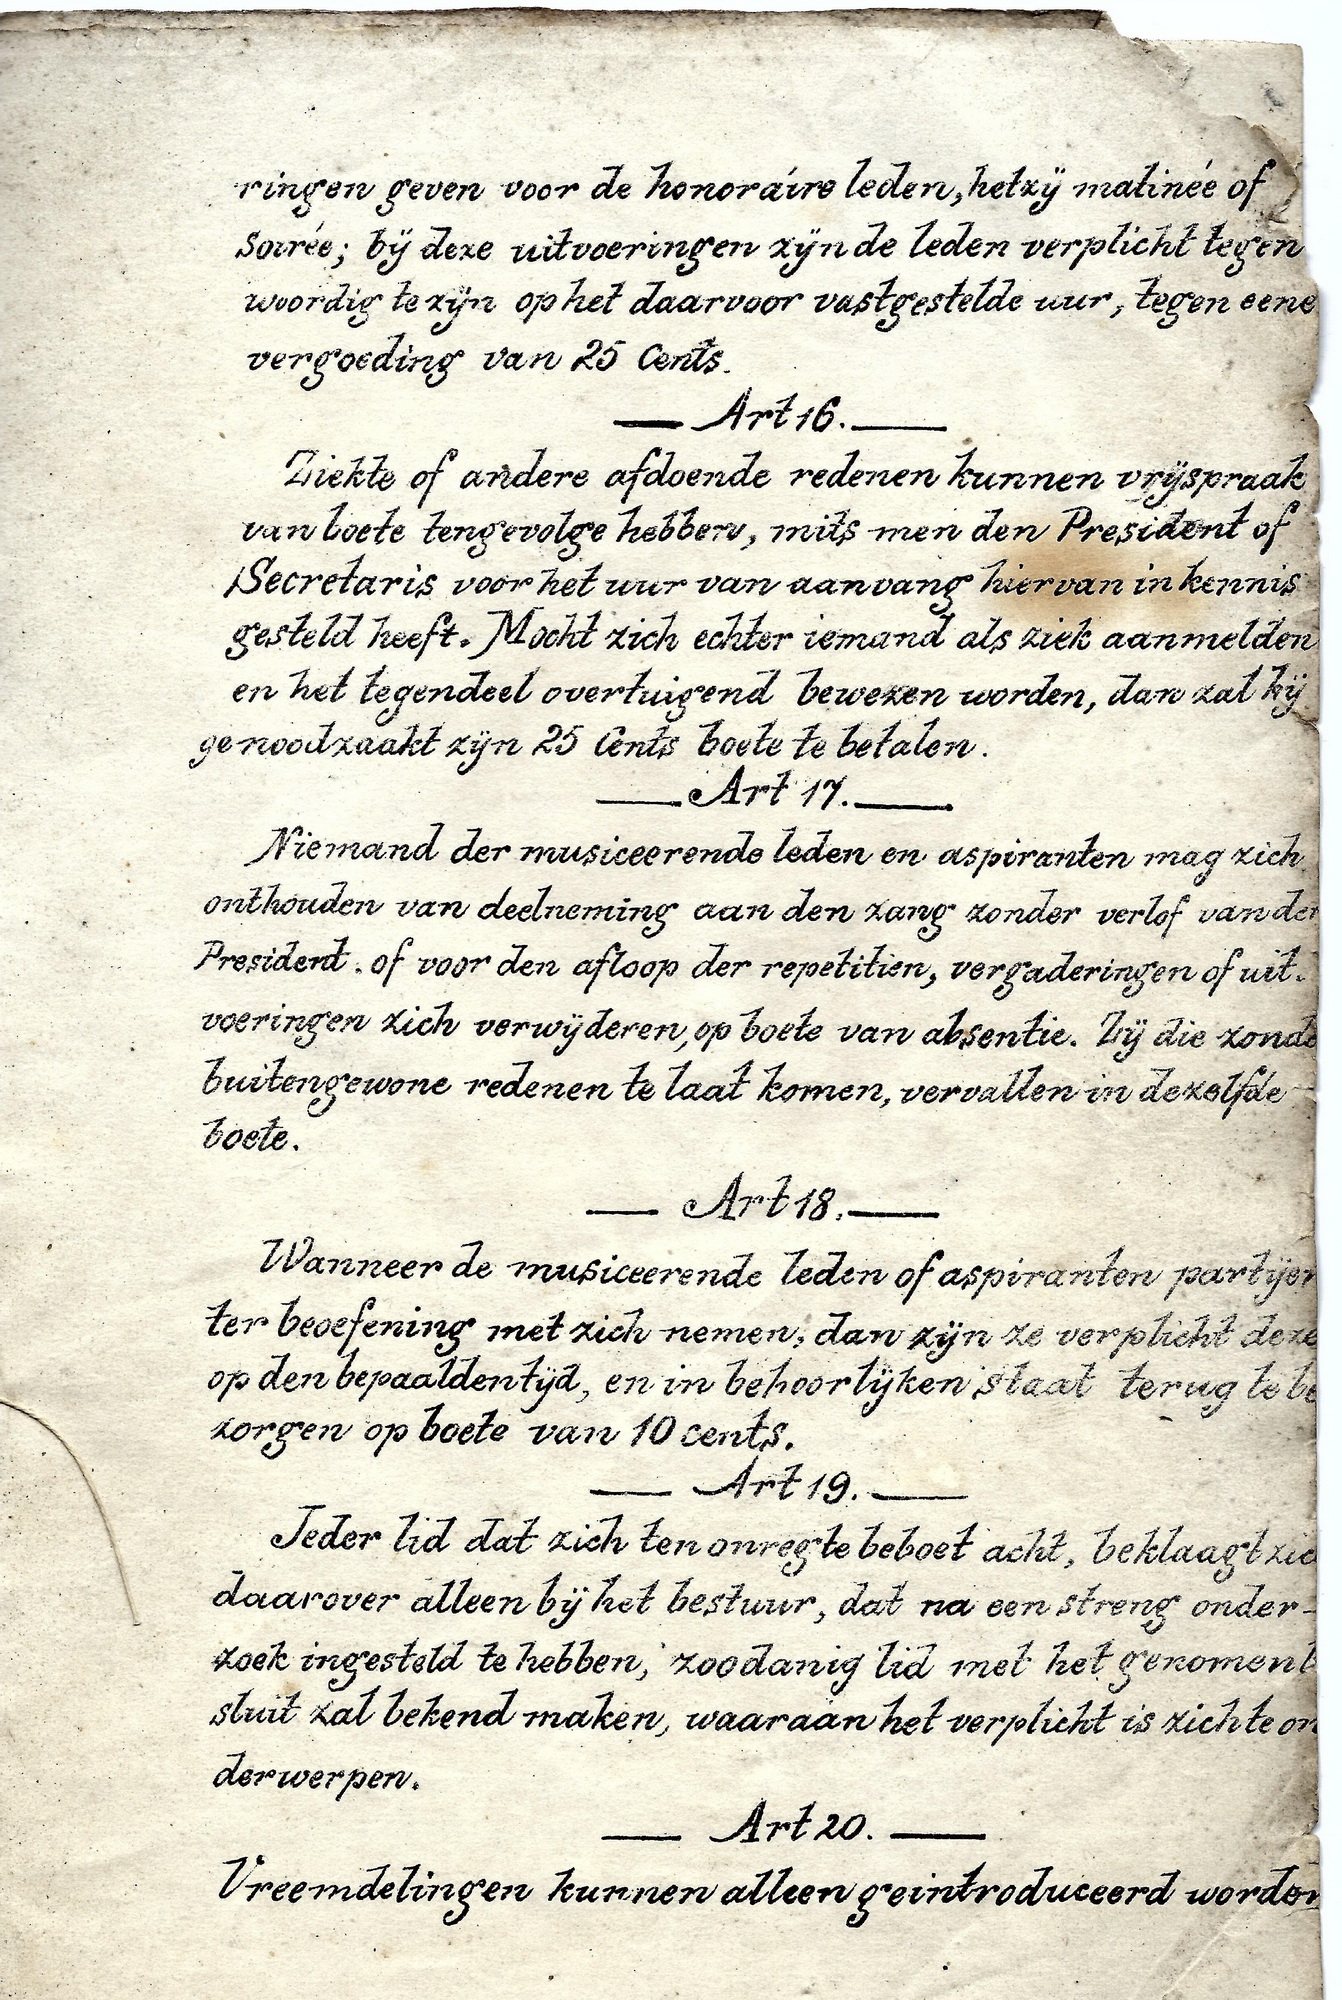 ringen geven voor de honoraire leden, hetzij matinée of
Soirée; bij deze uitvoeringen zijn de leden verplicht tegen
woordig te zijn op het daarvoor vastgestelde uur, tegen eene
vergoeding van 25 Cents.
— Art 16. —
Ziekte of andere afdoende redenen kunnen vrijspraak
van boete tengevolge hebben, mits men den President of
Secretaris voor het uur van aanvang hiervan in kennis
gesteld heeft. Mocht zich echter iemand als ziek aanmelden
en het tegendeel overtuigend bewezen worden, dan zal hij
genoodzaakt zijn 25 Cents boete te betalen.
— Art 17. —
Niemand der musiceerende leden en aspiranten mag zich
onthouden van deelneming aan den zang zonder verlof van der
President. of voor den afloop der repetitien, vergaderingen of uit-
voeringen zich verwijderen, op boete van absentie. Zij die zonde
buitengewone redenen te laat komen, vervallen in dezelfde
boete.
— Art 18. —
Wanneer de musiceerende leden of aspiranten partijen
ter beoefening met zich nemen, dan zijn ze verplicht deze
op den bepaalden tijd, en in behoorlijken staat terug te be
zorgen op boete van 10 cents.
— Art 19. —
Jeder lid dat zich ten onregte beboet acht, beklaagt zic
daarover alleen bij het bestuur, dat na een streng onder-
zoek ingesteld te hebben, zoodanig lid met het genomen b
sluit zal bekend maken, waaraan het verplicht is zich te on
derwerpen.
— Art 20. —
Vreemdelingen kunnen alleen geintroduceerd worden